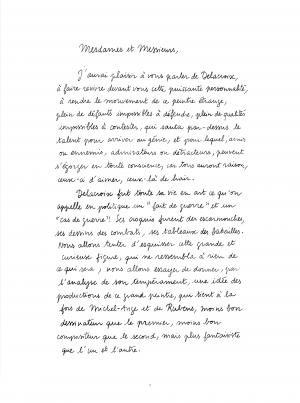 Mesdames et Messieurs,
J'aurai plaisir à vous parler de Delacroix,
à faire revivre devant vous cette puissante personnalité,
à rendre le mouvement de ce peintre étrange,
plein de défauts impossibles à défendre, plein de qualités
impossibles à contester, qui sauta par-dessus le
talent pour arriver au génie, et pour lequel, amis
ou ennemis, admirateurs ou détracteurs, peuvent
s'égorger en toute conscience, car tous auront raison,
ceux-ci d'aimer, ceux-là de haïr.
Delacroix fut toute sa vie en art ce qu'on
appelle en politique un "fait de guerre" et un
"cas de guerre". Ses croquis furent des escarmouches,
ses dessins des combats, ses tableaux des batailles.
Nous allons tenter d'esquisser cette grande et
curieuse figure, qui ne ressembla à rien de
ce qui sera, nous allons essayer de donner, par
l'analyse de son tempérament, une idée des
productions de ce grand peintre, qui tient à la
fois de Michel-Ange et de Rubens, moins bon
dessinateur que le premier, moins bon
compositeur que le second, mais plus fantaisiste
que l'un et l'autre.